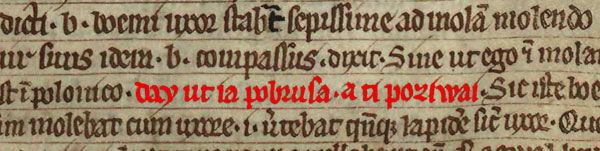 dicti · b · boemi uxor stabāt sepissime ad molā molendo
ur suus idem · b · compassus · dixit · Sine ut ego ī molar
st ī polonico · day ut ia pobrusa · a ti poziwai · Sic iste boe
im molebat cum uxore · i · ūtebat qn̄q lapidē sic̄ uxor · Quo